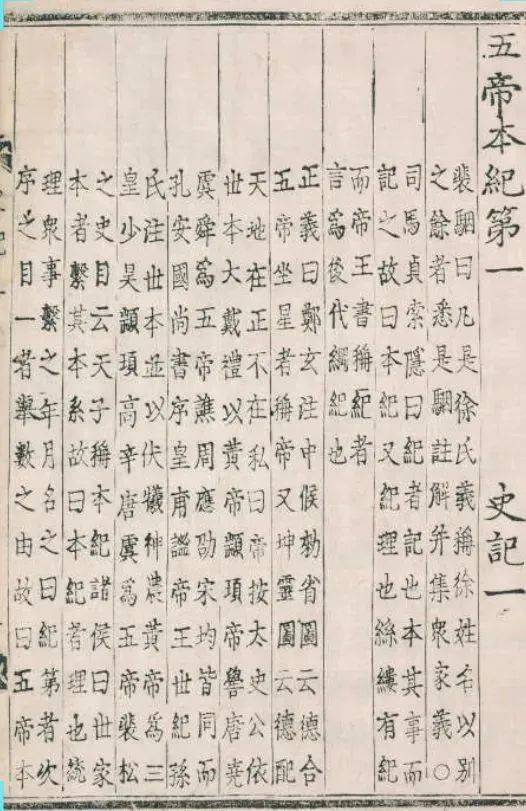 五帝本紀第一　史記一
裴駰曰凡是徐氏義稱徐姓名以别
之餘者悉是駰註解并集衆家義○
司馬貞索隱曰紀者記也本其事而
記之故曰本紀又紀理也絲縷有紀
而帝王書稱紀者
言爲後代綱紀也
正義曰鄭玄注中候勑省圖云德合
五帝坐星者稱帝又坤靈圖云德配
天地在正不在私曰帝按太史公依
世本大戴禮以黃帝顓頊帝嚳唐堯
虞舜爲五帝譙周應劭宋均皆同而
孔安國尚書序皇甫謐帝王世紀孫
氏注世本並以伏犧神農黃帝爲三
皇少昊顓頊高辛唐虞爲五帝裴松
之史目云天子稱本紀諸侯曰世家
本者繫其本系故曰本紀者理也統
理衆事繫之年月名之曰紀第者次
序之目一者舉數之由故曰五帝本